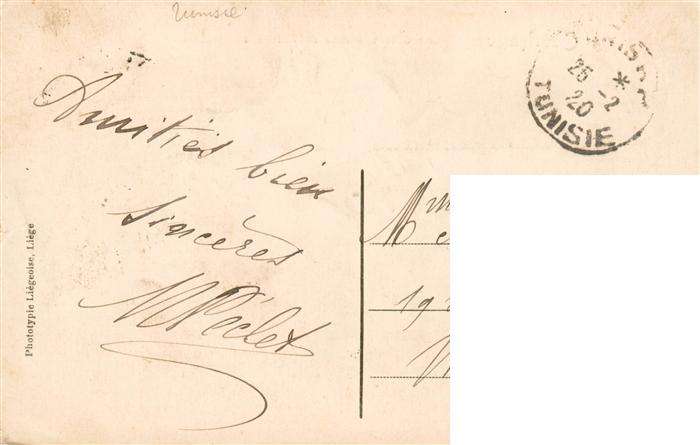 Tunisie
Amitiés bien
sincères
M Péclet
Phototypie Liégeoise, Liége
25 -2
20
TUNISIE
Mme
19